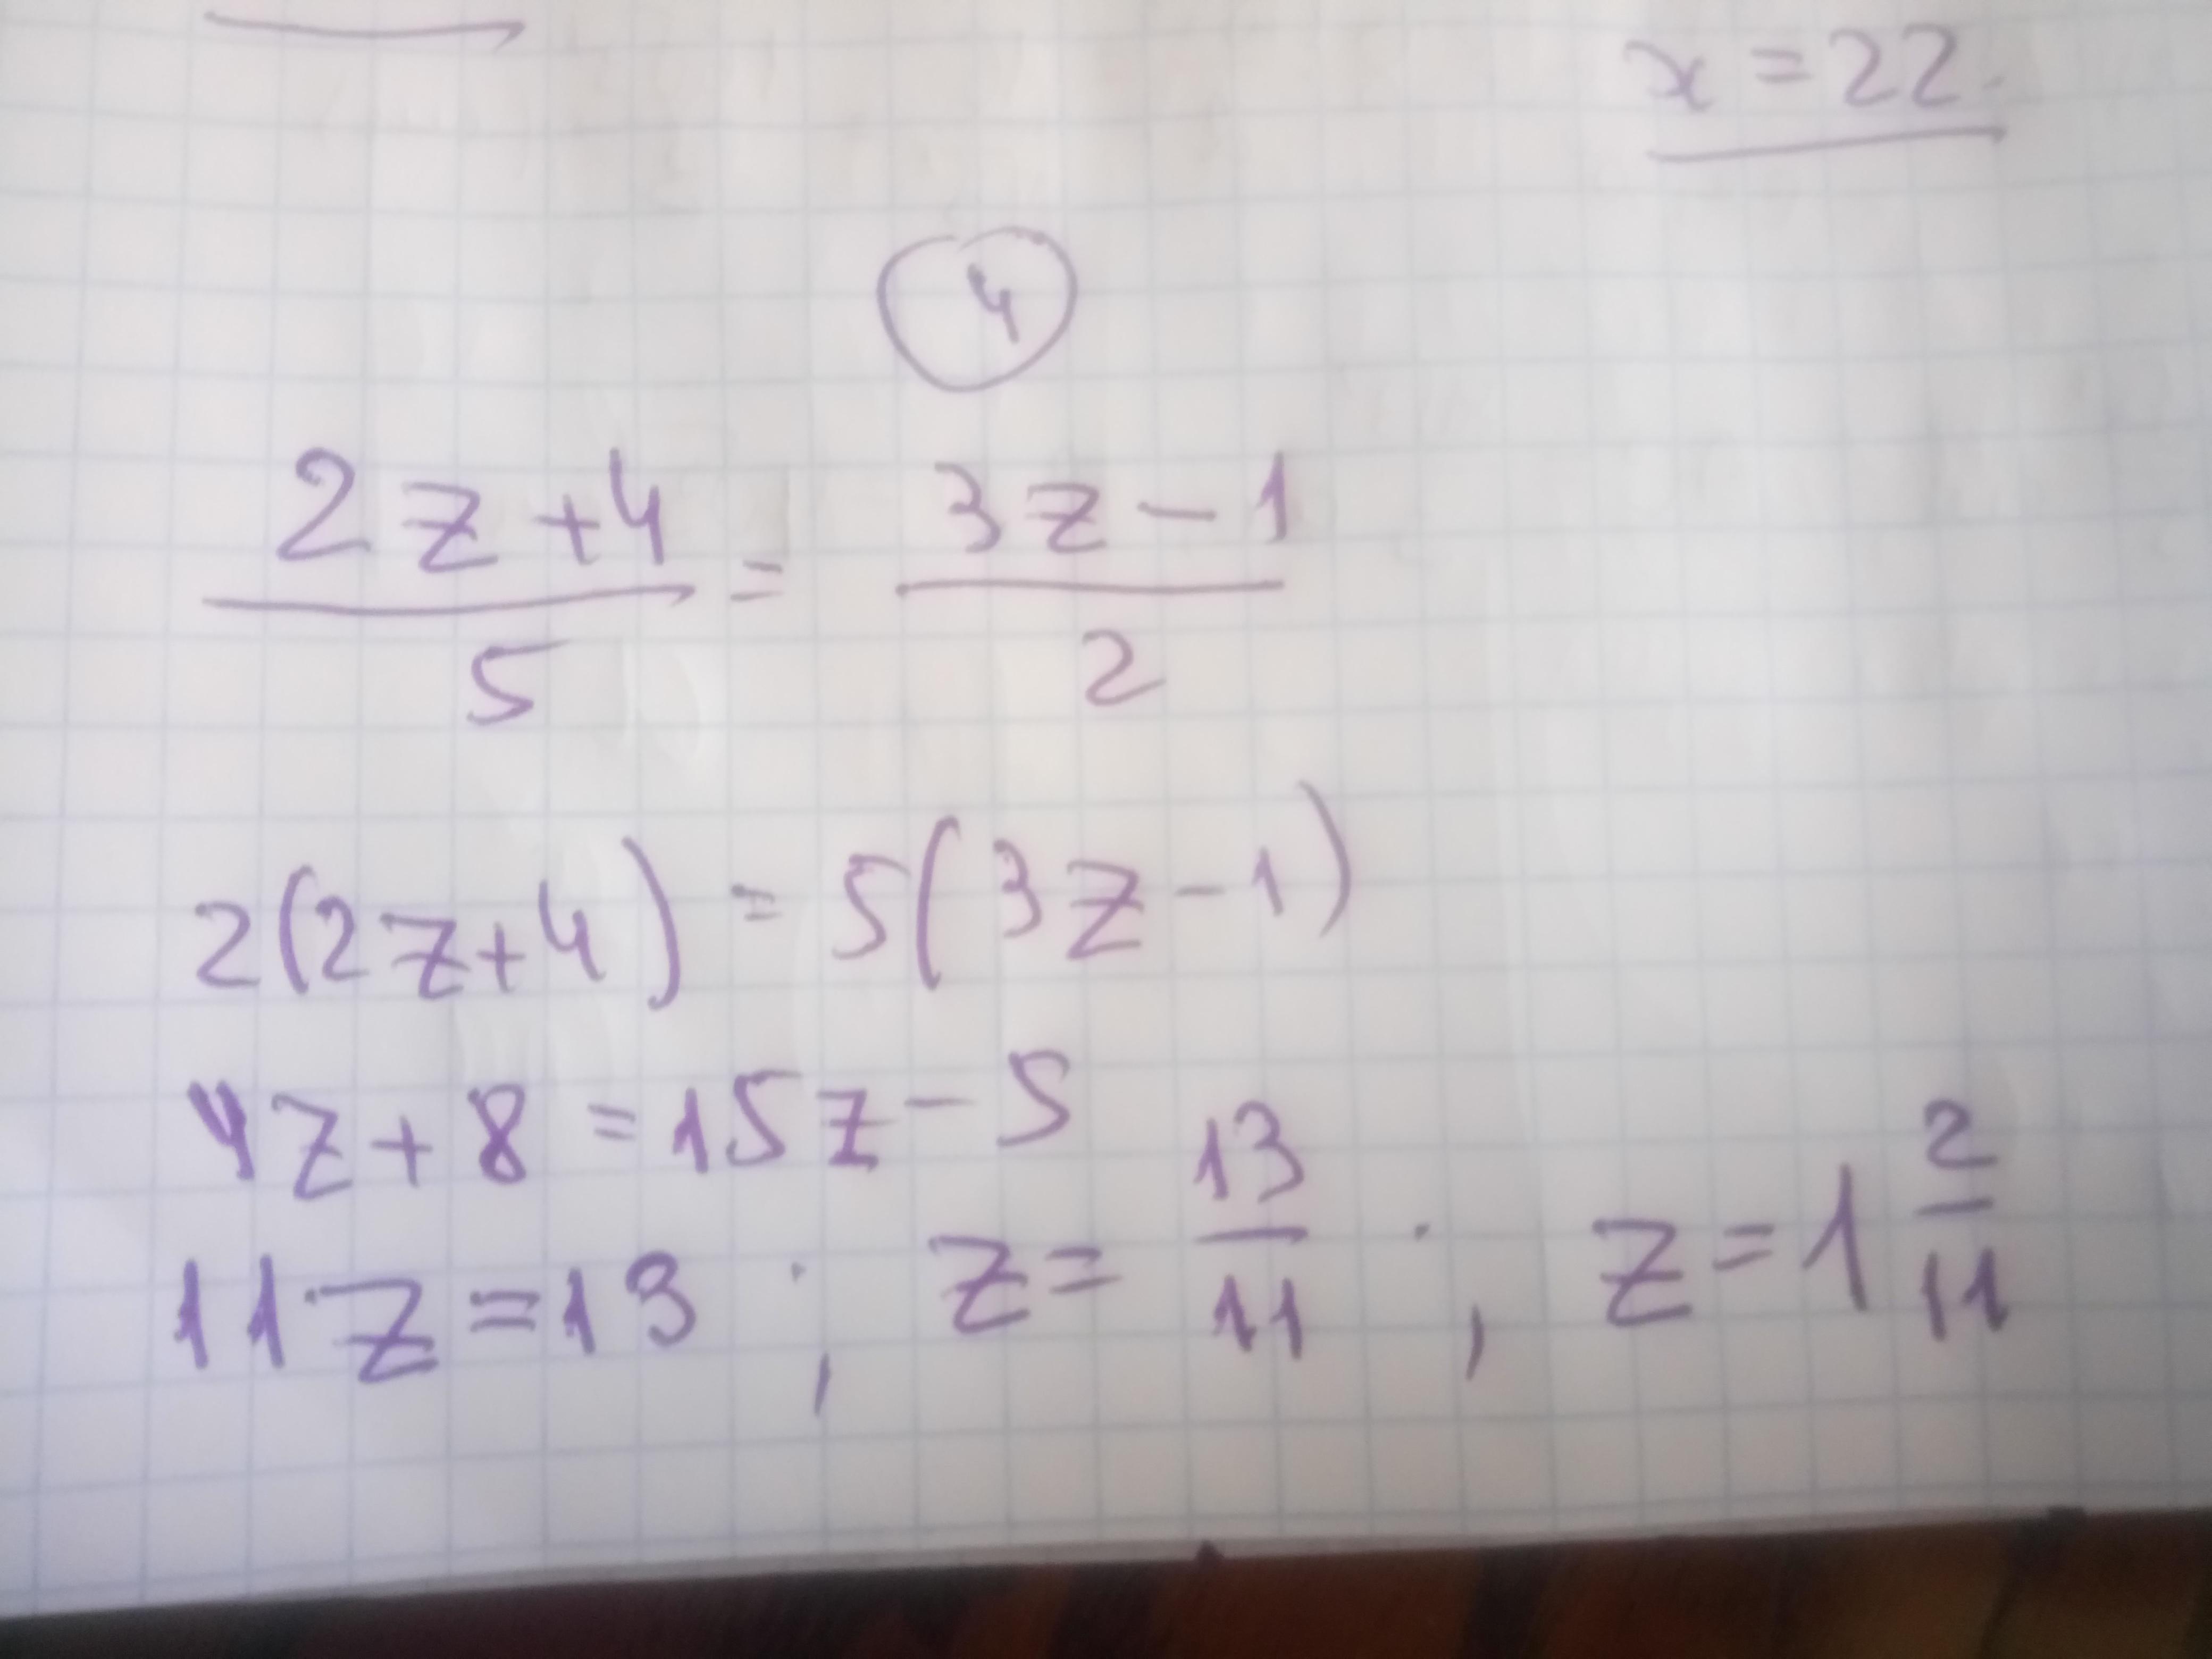 x = 22.
4
2z+4/5 = 3z-1/2
2(2z+4) = 5(3z-1)
4z+8 = 15z-5
11z=13 ; z= 13/11 ; z=1 2/11